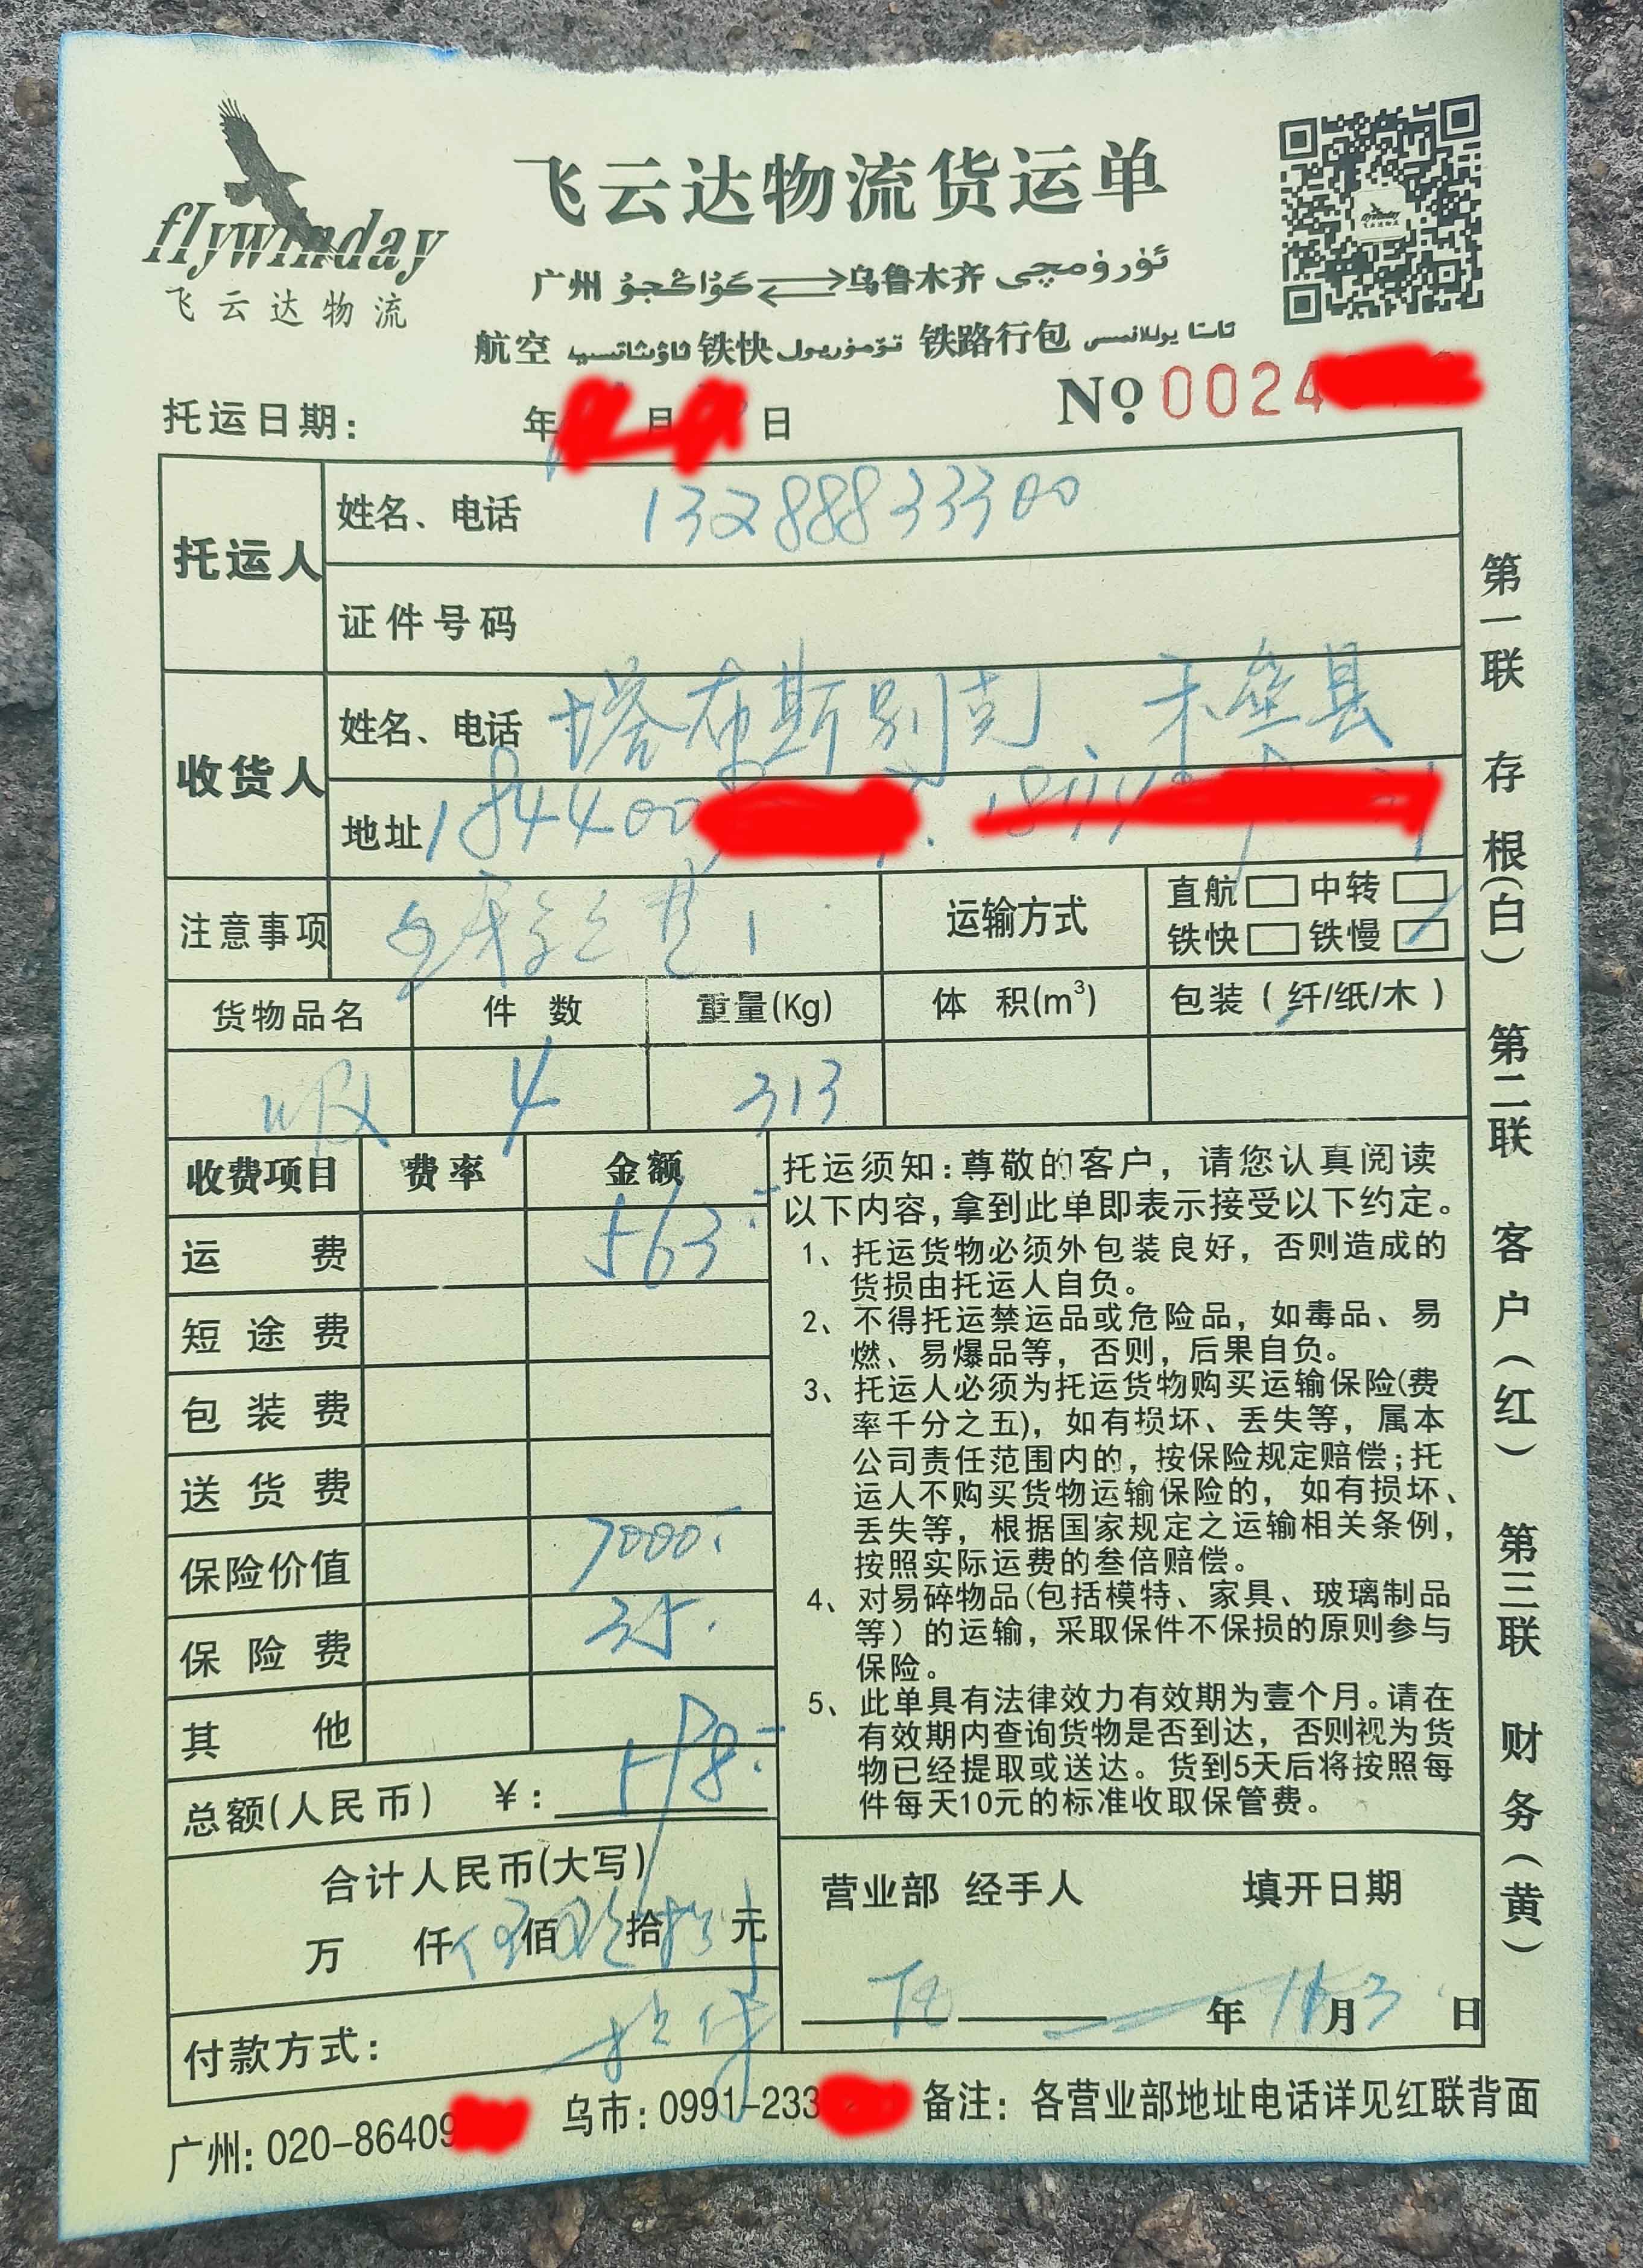 flywinday
飞云达物流
飞云达物流货运单
广州 گۇاڭجۇ 乌鲁木齐 ئۈرۈمچى
航空 铁快 تۆمۈريول 铁路行包
№ 0024
托运日期: 年 月 日
托运人
姓名、电话 13288833300
证件号码
收货人
姓名、电话 塔布斯别克、禾垒县
地址 1844400
注意事项
运输方式
直航 中转
铁快 铁慢
货物品名 件 数 重量(Kg) 体 积(m³) 包装(纤/纸/木)
4 313
收费项目 费率 金额
运 费 563
短途费
包装费
送货费
保险价值 7000
保险费 35
其 他
总额(人民币) ¥: 598
合计人民币(大写)
万 仟 伍 佰 玖 拾 捌 元
付款方式:
托运须知:尊敬的客户，请您认真阅读
以下内容,拿到此单即表示接受以下约定。
1、托运货物必须外包装良好，否则造成的
货损由托运人自负。
2、不得托运禁运品或危险品，如毒品、易
燃、易爆品等，否则，后果自负。
3、托运人必须为托运货物购买运输保险(费
率千分之五)，如有损坏、丢失等，属本
公司责任范围内的，按保险规定赔偿;托
运人不购买货物运输保险的，如有损坏、
丢失等，根据国家规定之运输相关条例，
按照实际运费的叁倍赔偿。
4、对易碎物品(包括模特、家具、玻璃制品
等）的运输，采取保件不保损的原则参与
保险。
5、此单具有法律效力有效期为壹个月。请在
有效期内查询货物是否到达，否则视为货
物已经提取或送达。货到5天后将按照每
件每天10元的标准收取保管费。
营业部 经手人 填开日期
年 11 月 3 日
第一联 存根(白) 第二联 客户(红) 第三联 财务(黄)
广州: 020-86409 乌市: 0991-233 备注: 各营业部地址电话详见红联背面